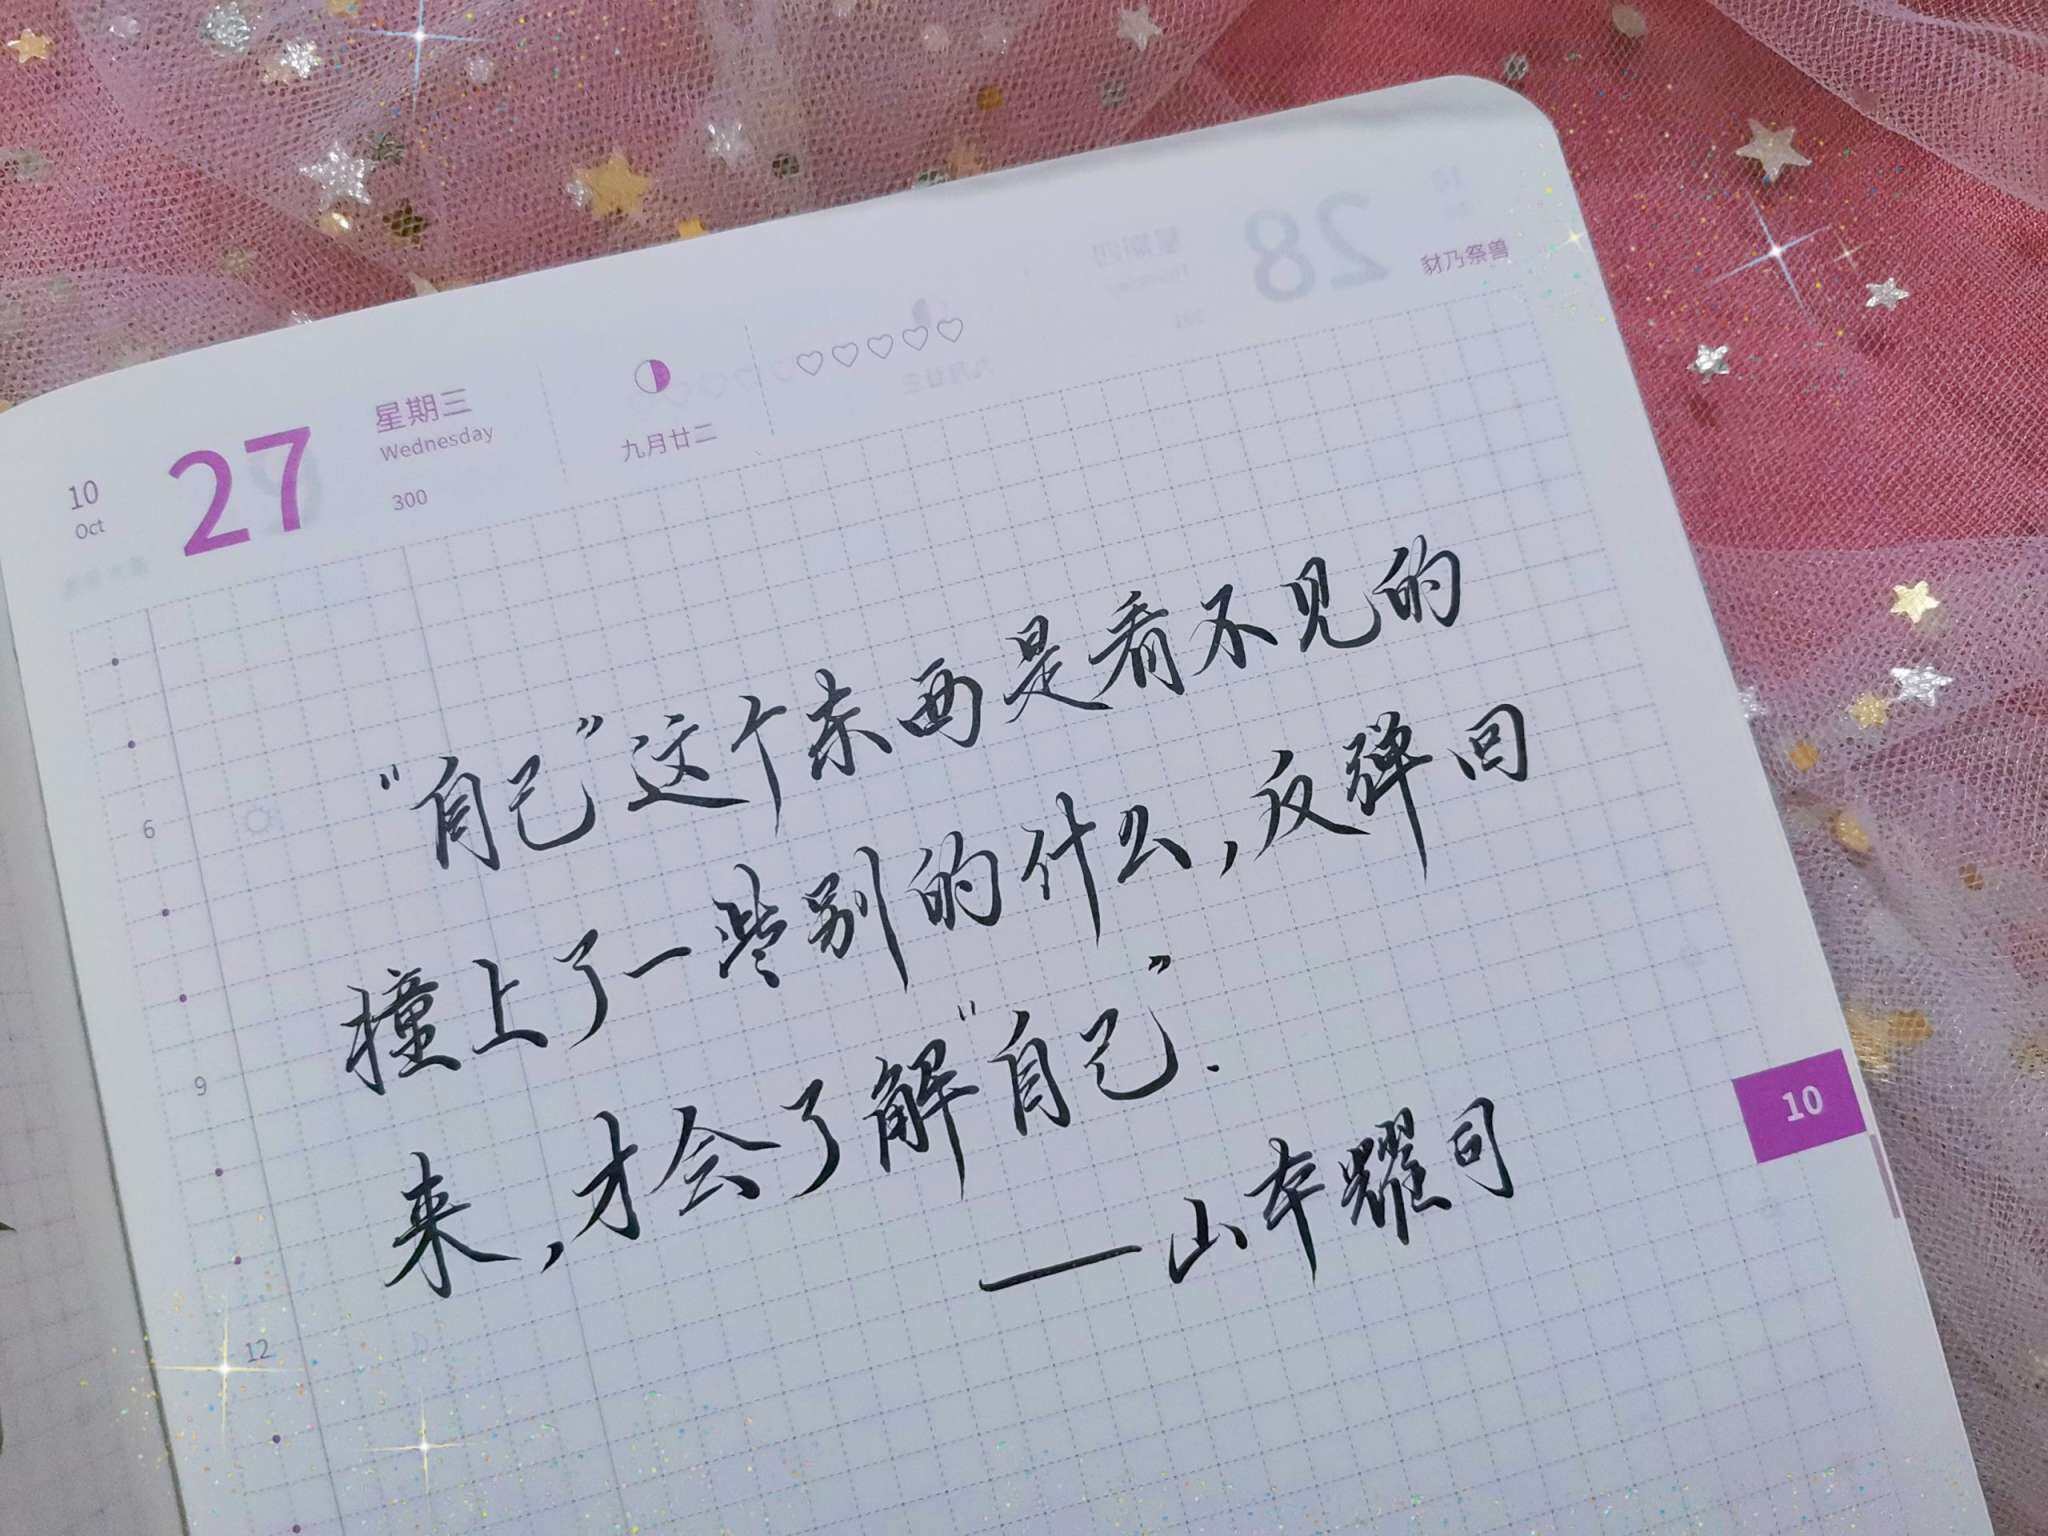 10
Oct
27
星期三
Wednesday
300
九月廿二
豺乃祭兽
28
6
9
12
10
"自己"这个东西是看不见的
撞上了一些别的什么,反弹回
来,才会了解"自己".
——山本耀司